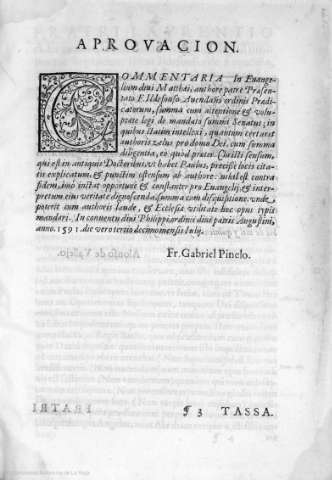 APROVACION.
COMMENTARIA In Evange-
lium diui Matthæi, authore patre Præsen-
tato F. Ildefonso Auendaño ordinis Prædi-
catorum, summa cum attentione & volu-
ptate legi de mandato summi Senatus; in
quibus statim intellexi, quantum certaret
authoris zelus pro domo Dei, cum summa
diligentia, eò quòd priùs Christi sensum,
qui est in antiquis Doctoribus, vt habet Paulus, præcisè locis cita-
tis explicatum, & punctim ostensum ab authore: nihil est contra
fidem, imò instat opportunè & constanter pro Euangelij, & inter-
pretum eius veritate dignoscenda summa cum disquisitione. vnde
poterit cum authoris laude, & Ecclesiæ vtilitate hoc opus typis
mandari. In conuentu diui Philippi ordinis diui patris Augustini,
anno. 1591. die verò tertio decimo mensis Iulij.
Fr. Gabriel Pinelo.
¶ 3 TASSA.